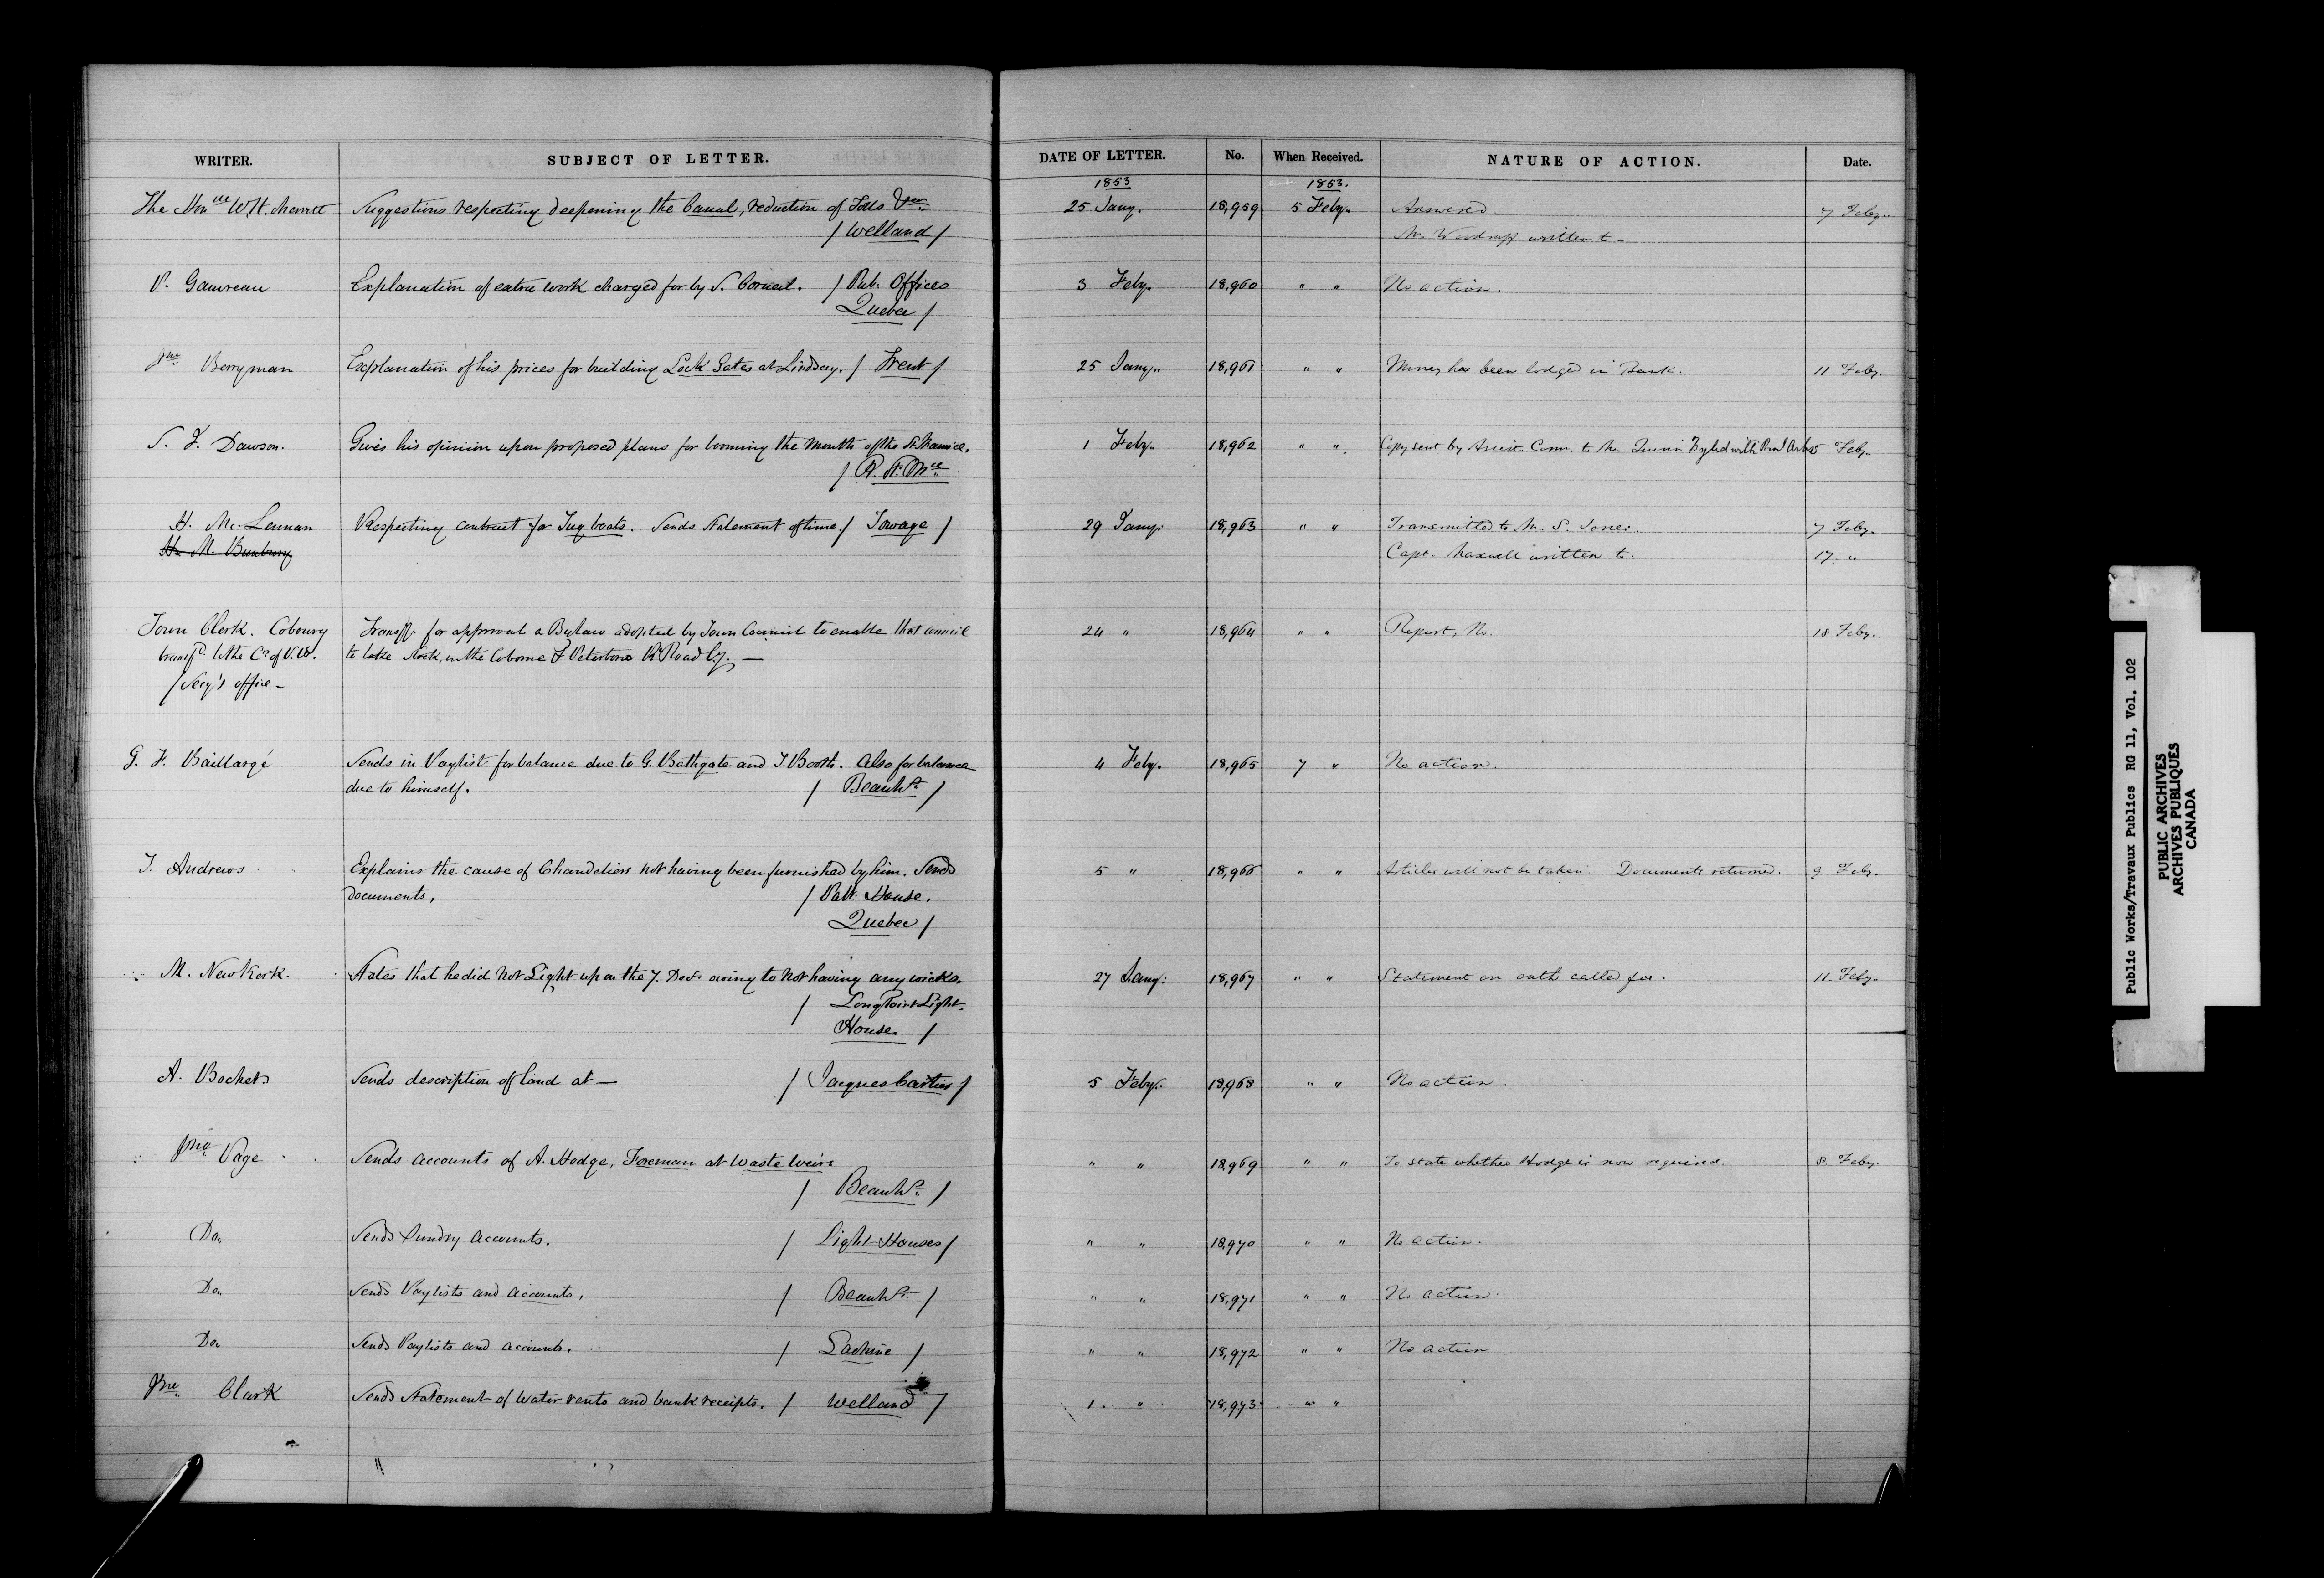 WRITER. SUBJECT OF LETTER. DATE OF LETTER. No. When Received. NATURE OF ACTION. Date.
1853 1853.
The Honble W. H. Merritt Suggestions respecting deepening the Canal, reduction of Tolls &c. 25 Jany. 18,959 5 Feby. Answered. 7 Feby.
/ Welland / Mr. Woodruff written to
P. Gauvreau Explanation of extra work charged for by S. Corneil. / Pub. Offices 3 Feby. 18,960 " " No action.
Quebec /
Jno. Berryman Explanation of his prices for building Lock Gates at Lindsay. / Trent / 25 Jany. 18,961 " " Money has been lodged in Bank. 11 Feby.
S. J. Dawson. Gives his opinion upon proposed plans for booming the mouth of the St. Maurice. 1 Feby. 18,962 " " Copy sent by Assist. Comr. to Mr. Quinn 5 Feby.
/ R. St. Mce
H. Mc. Lennan Respecting contract for Tug boats. Sends Statement of time / Towage / 29 Jany. 18,963 " " Transmitted to Mr. S. Jones. 7 Feby.
H. M. Bunbury Capt. Maxwell written to. 17 "
Town Clerk. Cobourg Transg. for approval a Bylaw adopted by Town Council to enable that council 24 " 18,964 " " Report, No. 18 Feby.
to take Stock, in the Cobourg & R. Road Cy. —
/ Secy's office —
G. F. Baillargé Sends in Paylist for balance due to G. Bathgate and J Booth. Also for balance 4 Feby. 18,965 7 " No action.
due to himself. / Beauhs. /
T. Andrews Explains the cause of Chandeliers not having been furnished by him. Sends 5 " 18,966 " " Articles will not be taken. Documents returned. 9 Feby.
documents. / Parlt. House.
Quebec /
M. Newkerk. States that he did not Light up on the 7. Decr. owing to not having any wicks. 27 Jany. 18,967 " " Statement on oath called for. 11 Feby.
/ Long Point Light-
House /
A. Bochet Sends description of land at — / Jacques Cartier / 5 Feby. 18,968 " " No action.
Jno. Page Sends accounts of A. Hodge, Foreman at Waste Weirs " " 18,969 " " To state whether Hodge is now required. 8. Feby.
/ Beauhs. /
Do. Sends Sundry accounts. / Light-Houses / " " 18,970 " " No action.
Do. Sends Paylists and accounts. / Beauhs. / " " 18,971 " " No action.
Do. Sends Paylists and accounts. / Lachine / " " 18,972 " " No action
Jno. Clark Sends Statement of water rents and bank receipts. / Welland / 1. " 18,973 " "
Public Works/Travaux Publics RG 11, Vol. 102
PUBLIC ARCHIVES
ARCHIVES PUBLIQUES
CANADA